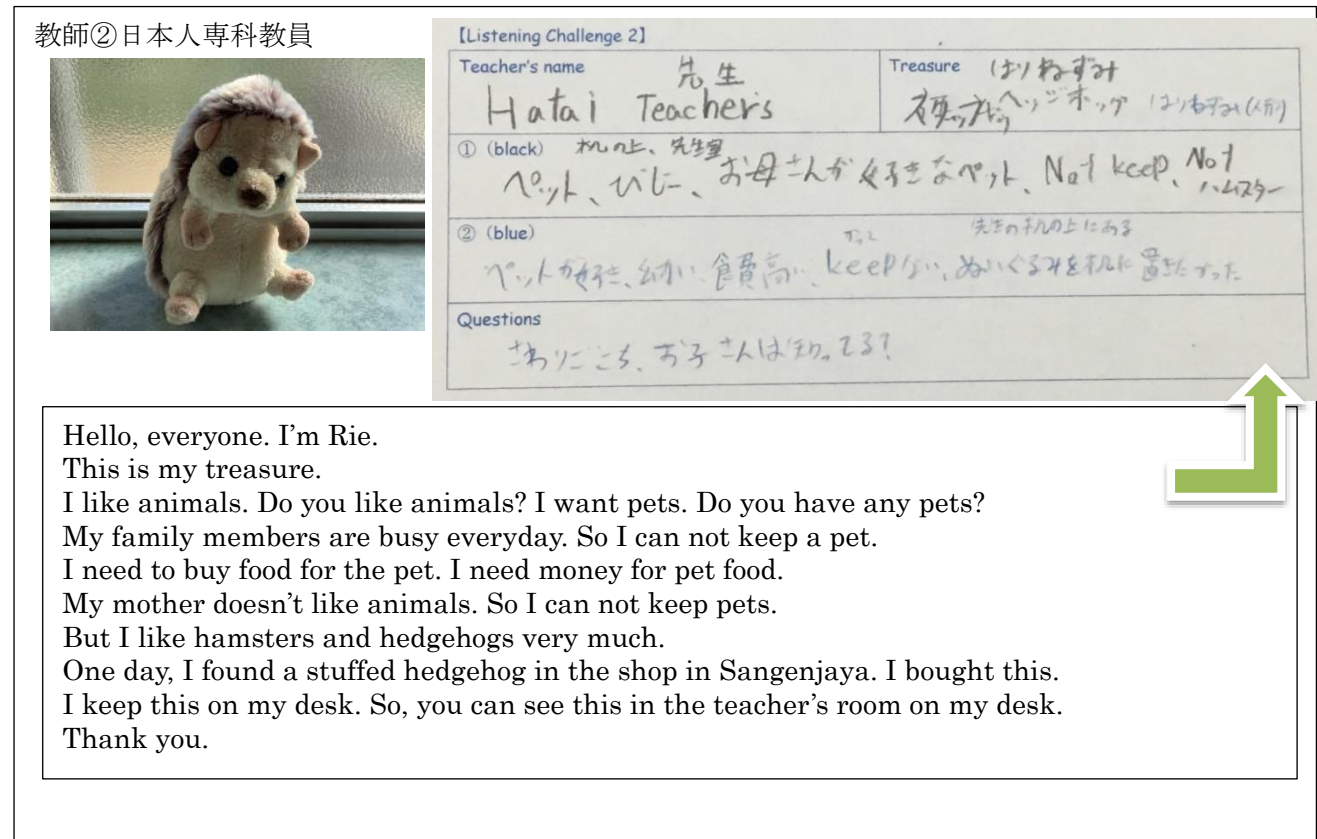 教師②日本人専科教員
【Listening Challenge 2】
Teacher's name 先生
Hatai Teachers
Treasure はりねずみ
ヘッジホッグ はりねずみ(人形)
① (black) 机の上、先生室
ペット、びじー、お母さんが好きなペット、Not keep、Not ハムスター
② (blue) 先生の机の上にある
ペットが好き、幼い、食費高い、keepない、ぬいぐるみを机に置きたかった
Questions
さわりごこち、お子さんは知ってる?
Hello, everyone. I'm Rie.
This is my treasure.
I like animals. Do you like animals? I want pets. Do you have any pets?
My family members are busy everyday. So I can not keep a pet.
I need to buy food for the pet. I need money for pet food.
My mother doesn't like animals. So I can not keep pets.
But I like hamsters and hedgehogs very much.
One day, I found a stuffed hedgehog in the shop in Sangenjaya. I bought this.
I keep this on my desk. So, you can see this in the teacher's room on my desk.
Thank you.